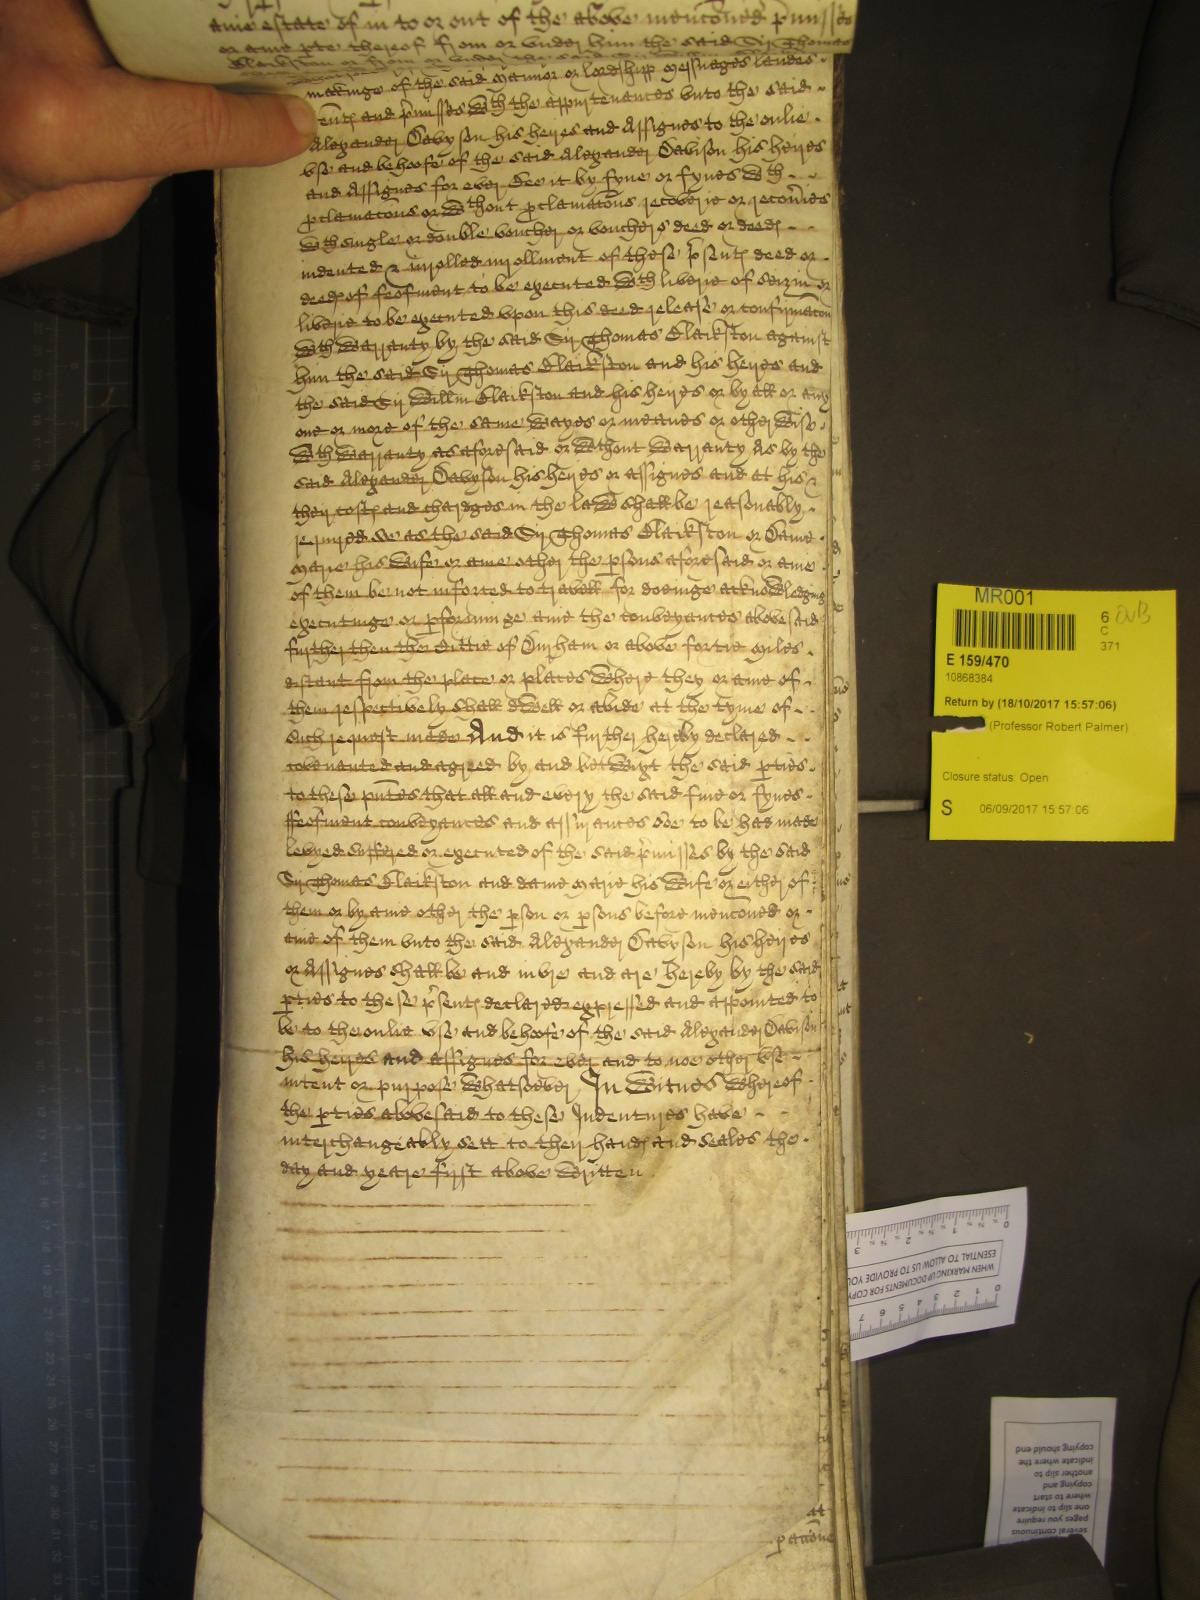 anie estate of in to or out of the above mencõned p̃misses
or anie pte thereof from or vnder him the said Sir Thomas
Clarkston or from or vnder
makinge of the said mannor or lordshipp messuages landes
tent℮ and p̃misses wth the appurtenances vnto the said
Alexander Davyson his heyres and Assignes to the onlie
vse and behoofe of the said Alexander Davison his heyres
and Assignes for ever Bee it by fyne or fynes wth
pclamacõns or wthout pclamacõns recoverie or recov̾ies
wth single or double voucher or vouchers deed or deed℮
indented & inrolled inrollment of these p̃sent℮ deed or
deed℮ of feofment to be executed wth liverie of seizin or
liverie to be executed vpon this deed release or confirmacon
wth warranty by the said Sir Thomas Clarkston against
him the said Sir Thomas Clarkston and his heyres and
the said Sir Willm Clarkston and his heyres or by all or any
one or more of the same wayes or meanes or otherwise
wth warranty as aforesaid or wthout warranty As by the
said Alexander Davyson his heyres or assignes and at his &
their cost℮ and chardges in the law shall be reasonably
required soe as the said Sir Thomas Clarkston or Dame
Marie his wife or anie other the psons aforesaid or anie
of them be not inforced to travell for dooinge acknowledging
executinge or pforminge anie the conveyances abovesaid
further then the Cittie of Durham or above fortie Miles
distant from the place or places where they or anie of
them respectively shall dwell or abide at the tyme of
such request made And it is further hereby declared
covenanted and agreed by and betwixt the said pties
to these pñtes that all and every the said fine or fynes
ffeofment conveyances and assurances soe to be had made
levyed suffred or executed of the said p̃misses by the said
Sir Thomas Clarkston and dame Marie his wife or either of
them or by anie other the pson or psons before mencõned or
anie of them vnto the said Alexander Davyson his heyres
or Assignes shall be and inure and are hereby by the said
pties to these p̃sent℮ declared expressed and appointed to
be to the onlie vse and behoofe of the said Alexander Davison
his heyres and assignes for ever and to noe other vse
intent or purpose whatsoever In witnes whereof
the pties abovesaid to these Indentures have
interchangeably sett to their hand℮ and seales the
day and yeare first above written
MR001
6
C
371
E 159/470
10868384
Return by (18/10/2017 15:57:06)
(Professor Robert Palmer)
Closure status: Open
S 06/09/2017 15:57:06
WHEN MARKING UP DOCUMENTS FOR COPY
ESENTIAL TO ALLOW US TO PROVIDE YOU
several continuous
pages you require
one slip to indicate
where to start
copying and
another slip to
indicate where the
copying should end